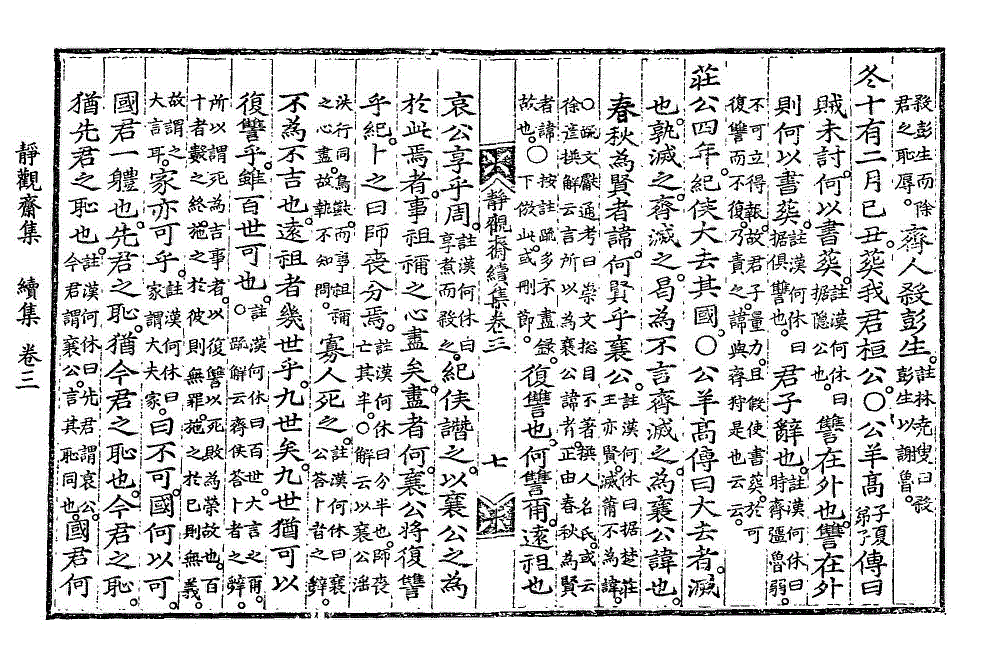 殺彭生而除
君之恥辱。齊人殺彭生。註林堯叟曰殺
彭生以謝魯。
冬十有二月己丑。葬我君桓公。○公羊高子夏
弟子。傳曰
賊未討。何以書葬。註漢何休曰
据隱公也。讐在外也。讐在外
則何以書葬。註漢何休曰
据俱讐也。君子辭也。註漢何休曰
時齊彊魯弱。
不可立得報。故君子量力。且假使書葬。於可
復讐而不復。乃責之。諱與齊狩是也云云
莊公四年。紀侯大去其國。○公羊高傳曰大去者。滅
也。孰滅之。齊滅之。曷爲不言齊滅之。爲襄公諱也。
春秋爲賢者諱。何賢乎。襄公。註漢何休曰据楚莊
王亦賢。滅蕭不爲諱。
○疏文獻通考曰崇文総目不著撰人名氏。或云
徐彦撰解云言所以爲襄公諱者。正由春秋爲賢
者諱。按註疏多不盡錄。
故也。○下倣此。或刪節。復讐也。何讐爾。遠祖也
哀公亨乎周。註漢何休曰
亨煮而殺之。紀侯譖之。以襄公之爲
於此焉者。事祖禰之心盡矣。盡者何。襄公將復讐
乎紀。卜之曰師喪分焉。註漢何休曰分半也。師喪
亡其半。○解云以襄公淫
泆行同鳥獸。而事祖禰
之心盡。故執不知問。寡人死之。註漢何休曰襄
公答卜者之辭。
不爲不吉也。遠祖者幾世乎。九世矣。九世猶可以
復讐乎。雖百世可也。註漢何休曰百世。大言之爾。
○疏解云齊侯答卜者之辭
所以謂死爲吉事者。以復讐以死敗爲榮故也。百
十者數之終。施之於彼則無罪。施之於己則無義。
故謂之
大言耳。家亦可乎。註漢何休曰
家謂大夫家。曰不可。國何以可
國君一體也。先君之恥。猶今君之恥也。今君之恥。
猶先君之恥也。註漢何休曰先君謂哀公。
今君謂襄公。言其恥同也。國君何
靜觀齋續集卷三
七
靜觀齋集 續集 卷三